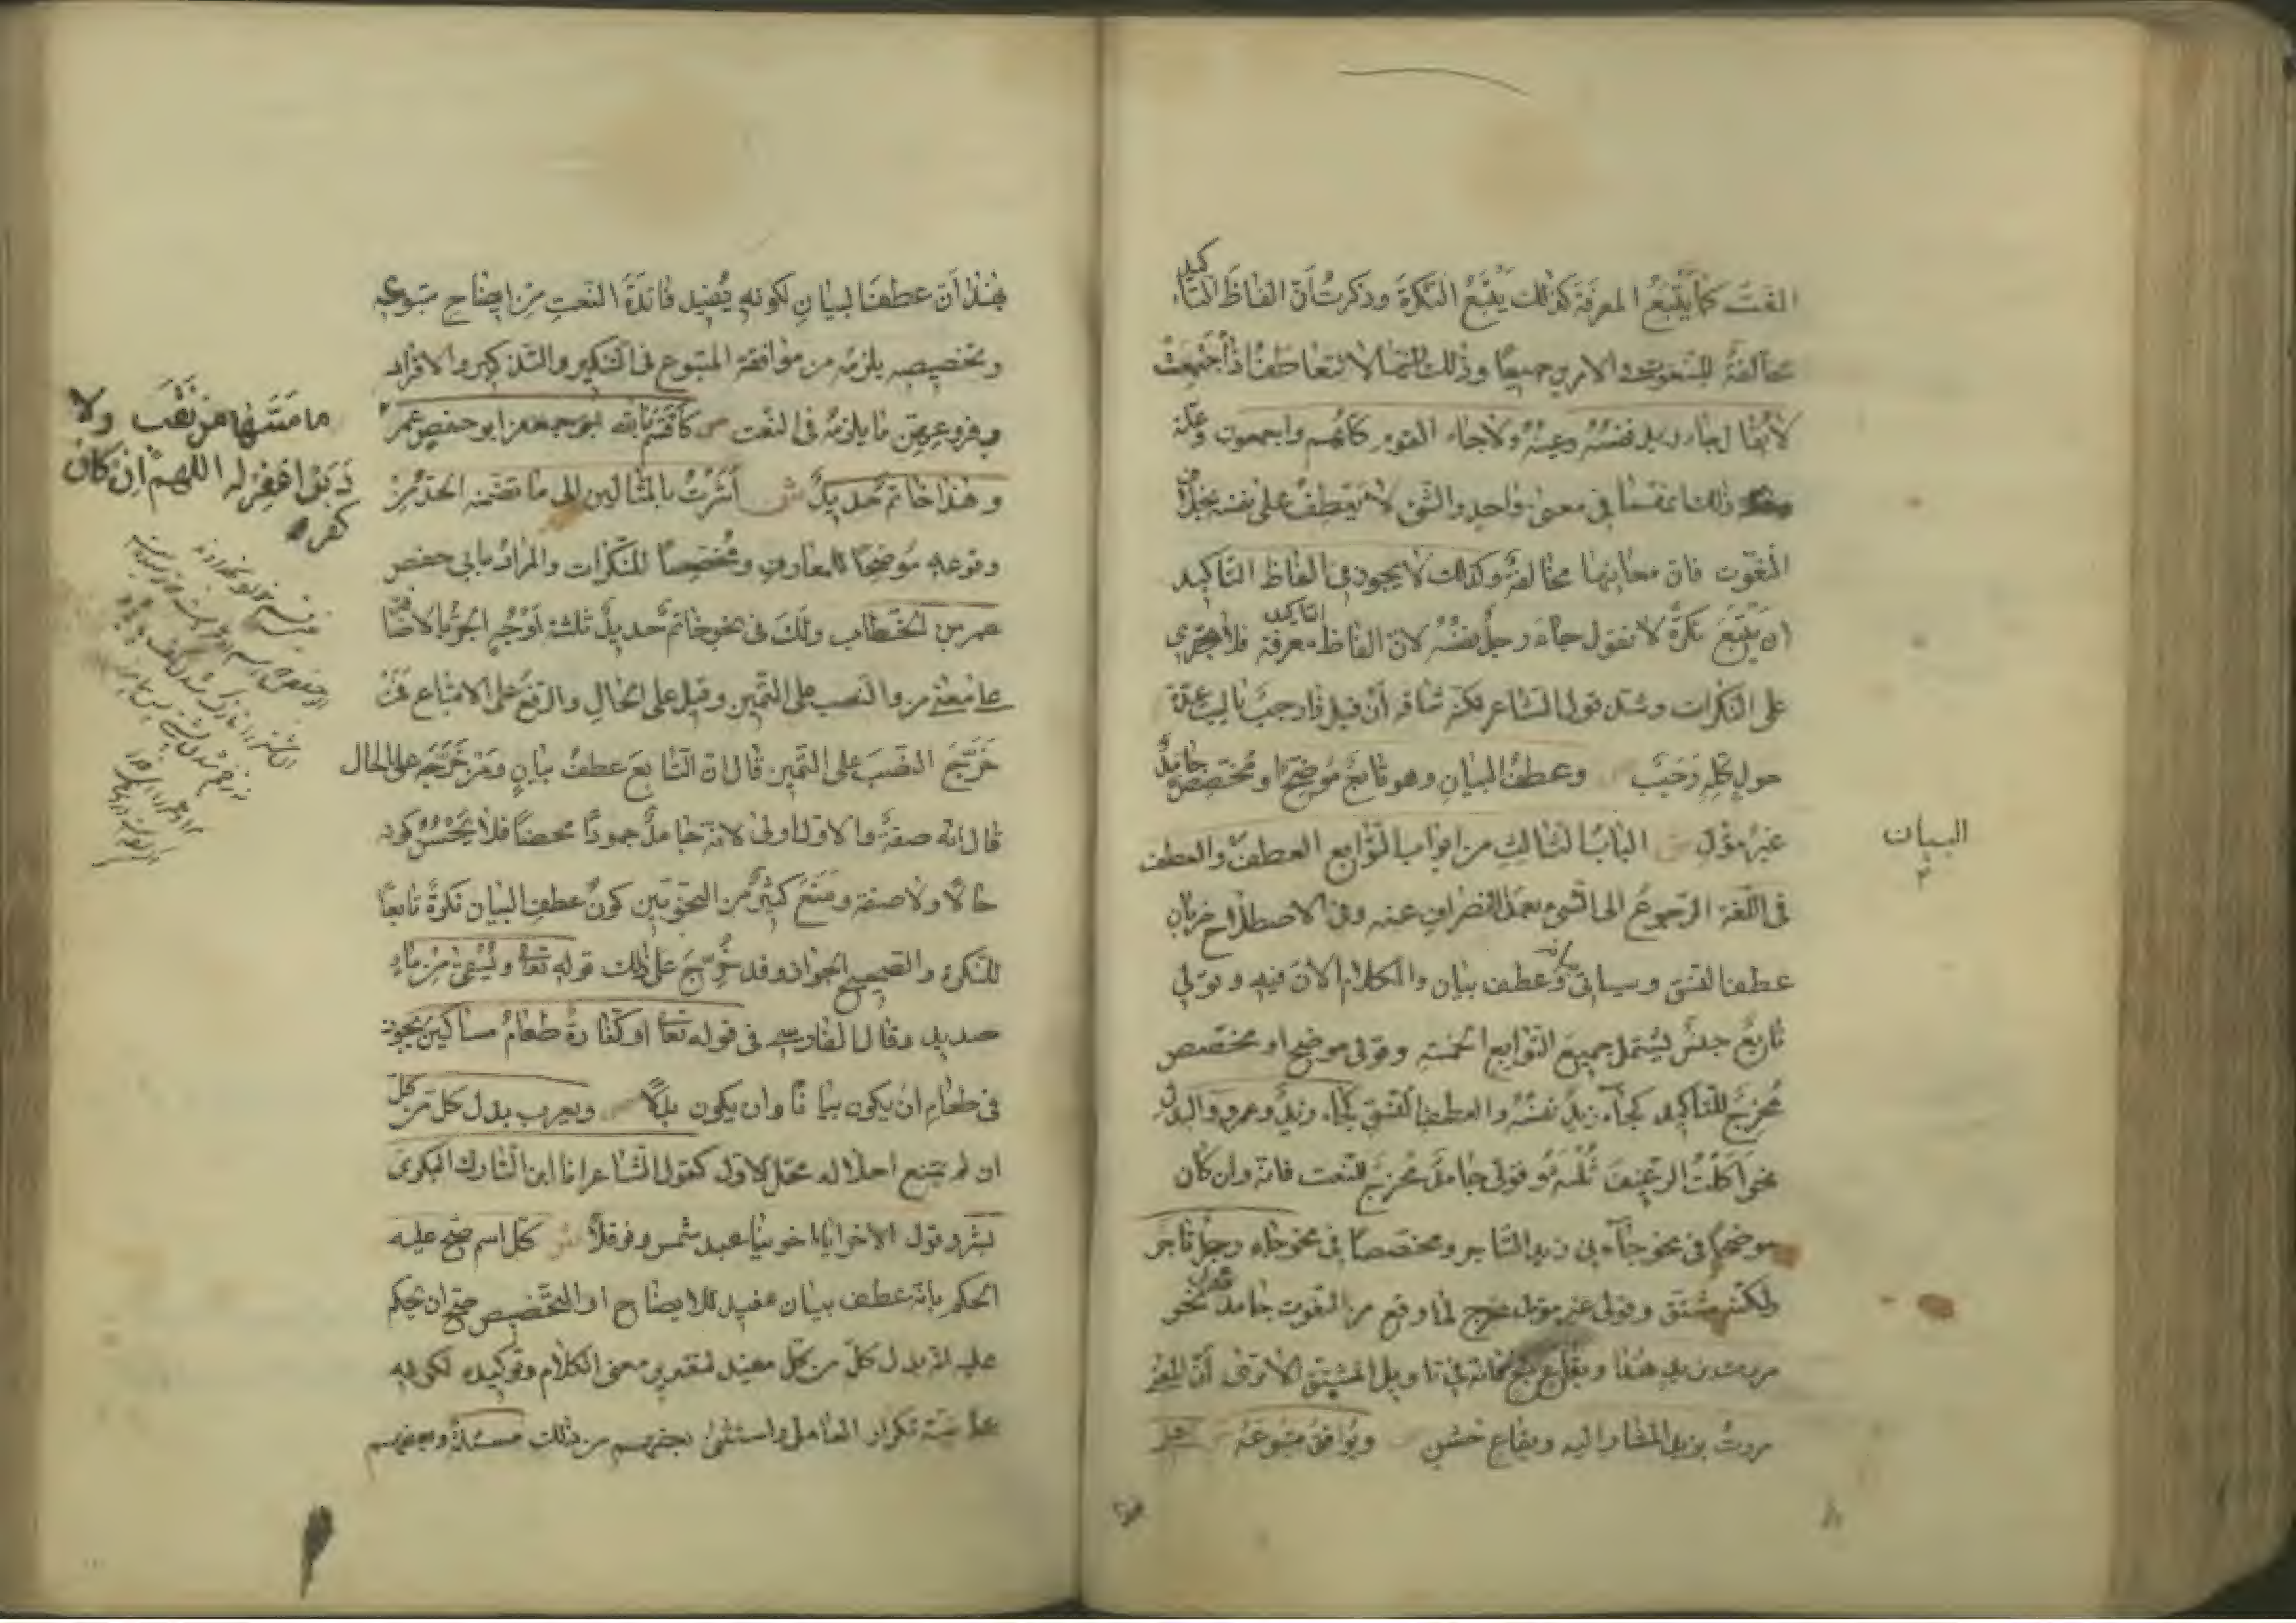 النعت كما يَتْبَعُ المعرفة كذلك يَتْبَعُ النكرةَ وذكرتُ أنّ الفاظَ التأكيد
مخالفةٌ للنعوت في الامرين جميعًا وذلك انّها لا تتعاطف اذا اجتمعتْ
لا يقال جاء زيد نفسُهُ وعينُهُ ولا جاء القوم كلّهم واجمعون وعلّة
ذلك انّها في معنىً واحدٍ والشئ لا يعطف على نفسه بخلاف
النعوت فان معانيها مخالفةٌ وكذلك لا يجوز في الفاظ التأكيد
ان يَتْبَعَ نكرةً لا تقول جاء رجلٌ نفسُهُ لان الفاظ التأكيد معرفة فلا تجري
على النكرات وشذّ قول الشاعر لكنّه شاقه أنْ قيل ذا رجبٌ يا ليت عدّة
حولٍ كلِّهِ رَجَبُ وعطفُ البيانِ وهو تابعٌ مُوضِحٌ او مُخَصِّصٌ جامدٌ
غيرُ مؤوّل ش البابُ الثالث من ابواب التوابع العطفُ والعطف
في اللّغة الرّجوعُ الى الشئ بعد الانصراف عنه وفي الاصطلاح ضربان
عطف النسق وسيأتي وعطف بيان والكلام الآن فيه وقولي
تابعٌ جنسٌ يشمل جميعَ التوابع الخمسة وقولي موضح او مخصّص
مُخرِجٌ للتأكيد كجاء زيدٌ نفسُهُ والعطف النسق كجاء زيدٌ وعمرو والبدل
نحو اكلتُ الرغيفَ ثُلثَهُ وقولي جامدٌ مُخرِجٌ للنعت فانّه وان كان
موضحًا في نحو جاءني زيد التاجر ومخصصًا في نحو جاءني رجلٌ تاجر
ولكنه مشتق وقولي غير مؤول مخرج لما وقع من النعوت جامدًا نحو
مررت بزيد هذا وبقاع عرفج فانّه في تأويل المشتق الا ترى انّ المعنى
مررتُ بزيد المشار اليه وبقاع خشنٍ ويُوافِقُ متبوعَهُ
البيان
فهذا أنّ عطف البيان لكونه يُفيد فائدةَ النعتِ مِن ايضاحِ متبوعِهِ
وتخصيصِهِ يلزمُهُ من موافقة المتبوع في التنكير والتذكير والافراد
وفروعِهِنّ ما يلزمُهُ في النعت ص كأقسَمَ بالله ابو حفص عمر
وهذا خاتم حديدٌ ش أشَرْتُ بالمثالين الى ما تضمّنه الحدّ مِن
وقوعه موضحًا للمعارف ومُخصّصًا للنّكرات والمراد بابي حفص
عمر بن الخطاب ولَكَ في نحو خاتم حديد ثلثة اوجُهٍ الجرُّ بالاضافة
على معنى من والنصب على التّميز وقيل على الحالِ والرّفعُ على الاتباع فَمَنْ
خَرَّجَ النصبَ على التّميز قال ان التّابعَ عطفُ بيانٍ ومَنْ خَرَّجَهُ على الحال
قال انّه صفةٌ والاول اولى لانّه جامدٌ جمودًا محضًا فلا يَحْسُنُ كونه
حالًا ولا صفة ومَنَعَ كثيرٌ من النحويّين كونَ عطفِ البيان نكرةً تابعًا
للنكرة والصحيح الجواز وقد خُرّجَ على ذلك قوله تعالى ويُسقى مِن ماءٍ
صديدٍ وقال الفارسي في قوله تعالى او كفّارةٌ طعامُ مساكينَ يجوز
في طعام ان يكون بيانًا وان يكون بدلًا ص ويعرب بدلَ كلٍّ من كلٍّ
ان لم يمتنع احلاله محلّ الاول كقول الشاعر انا ابن التارك البكريّ
بشرٍ وقول الاخر ايا اخوينا عبد شمس ونوفلًا ش كلّ اسم صحّ عليه
الحكم بانّه عطف بيان مفيد للايضاح او التّخصيص صحّ ان يحكم
عليه بانّه بدل كلّ من كلّ مفيد لتقرير معنى الكلام وتوكيده لكونه
على نيّة تكرار العامل واستثنى بعضهم من ذلك مسئلةً وبعضهم
ما مَسّها مِن نَقَبٍ ولا
دَبَرْ اغفِرْ له اللهمّ اِن كان